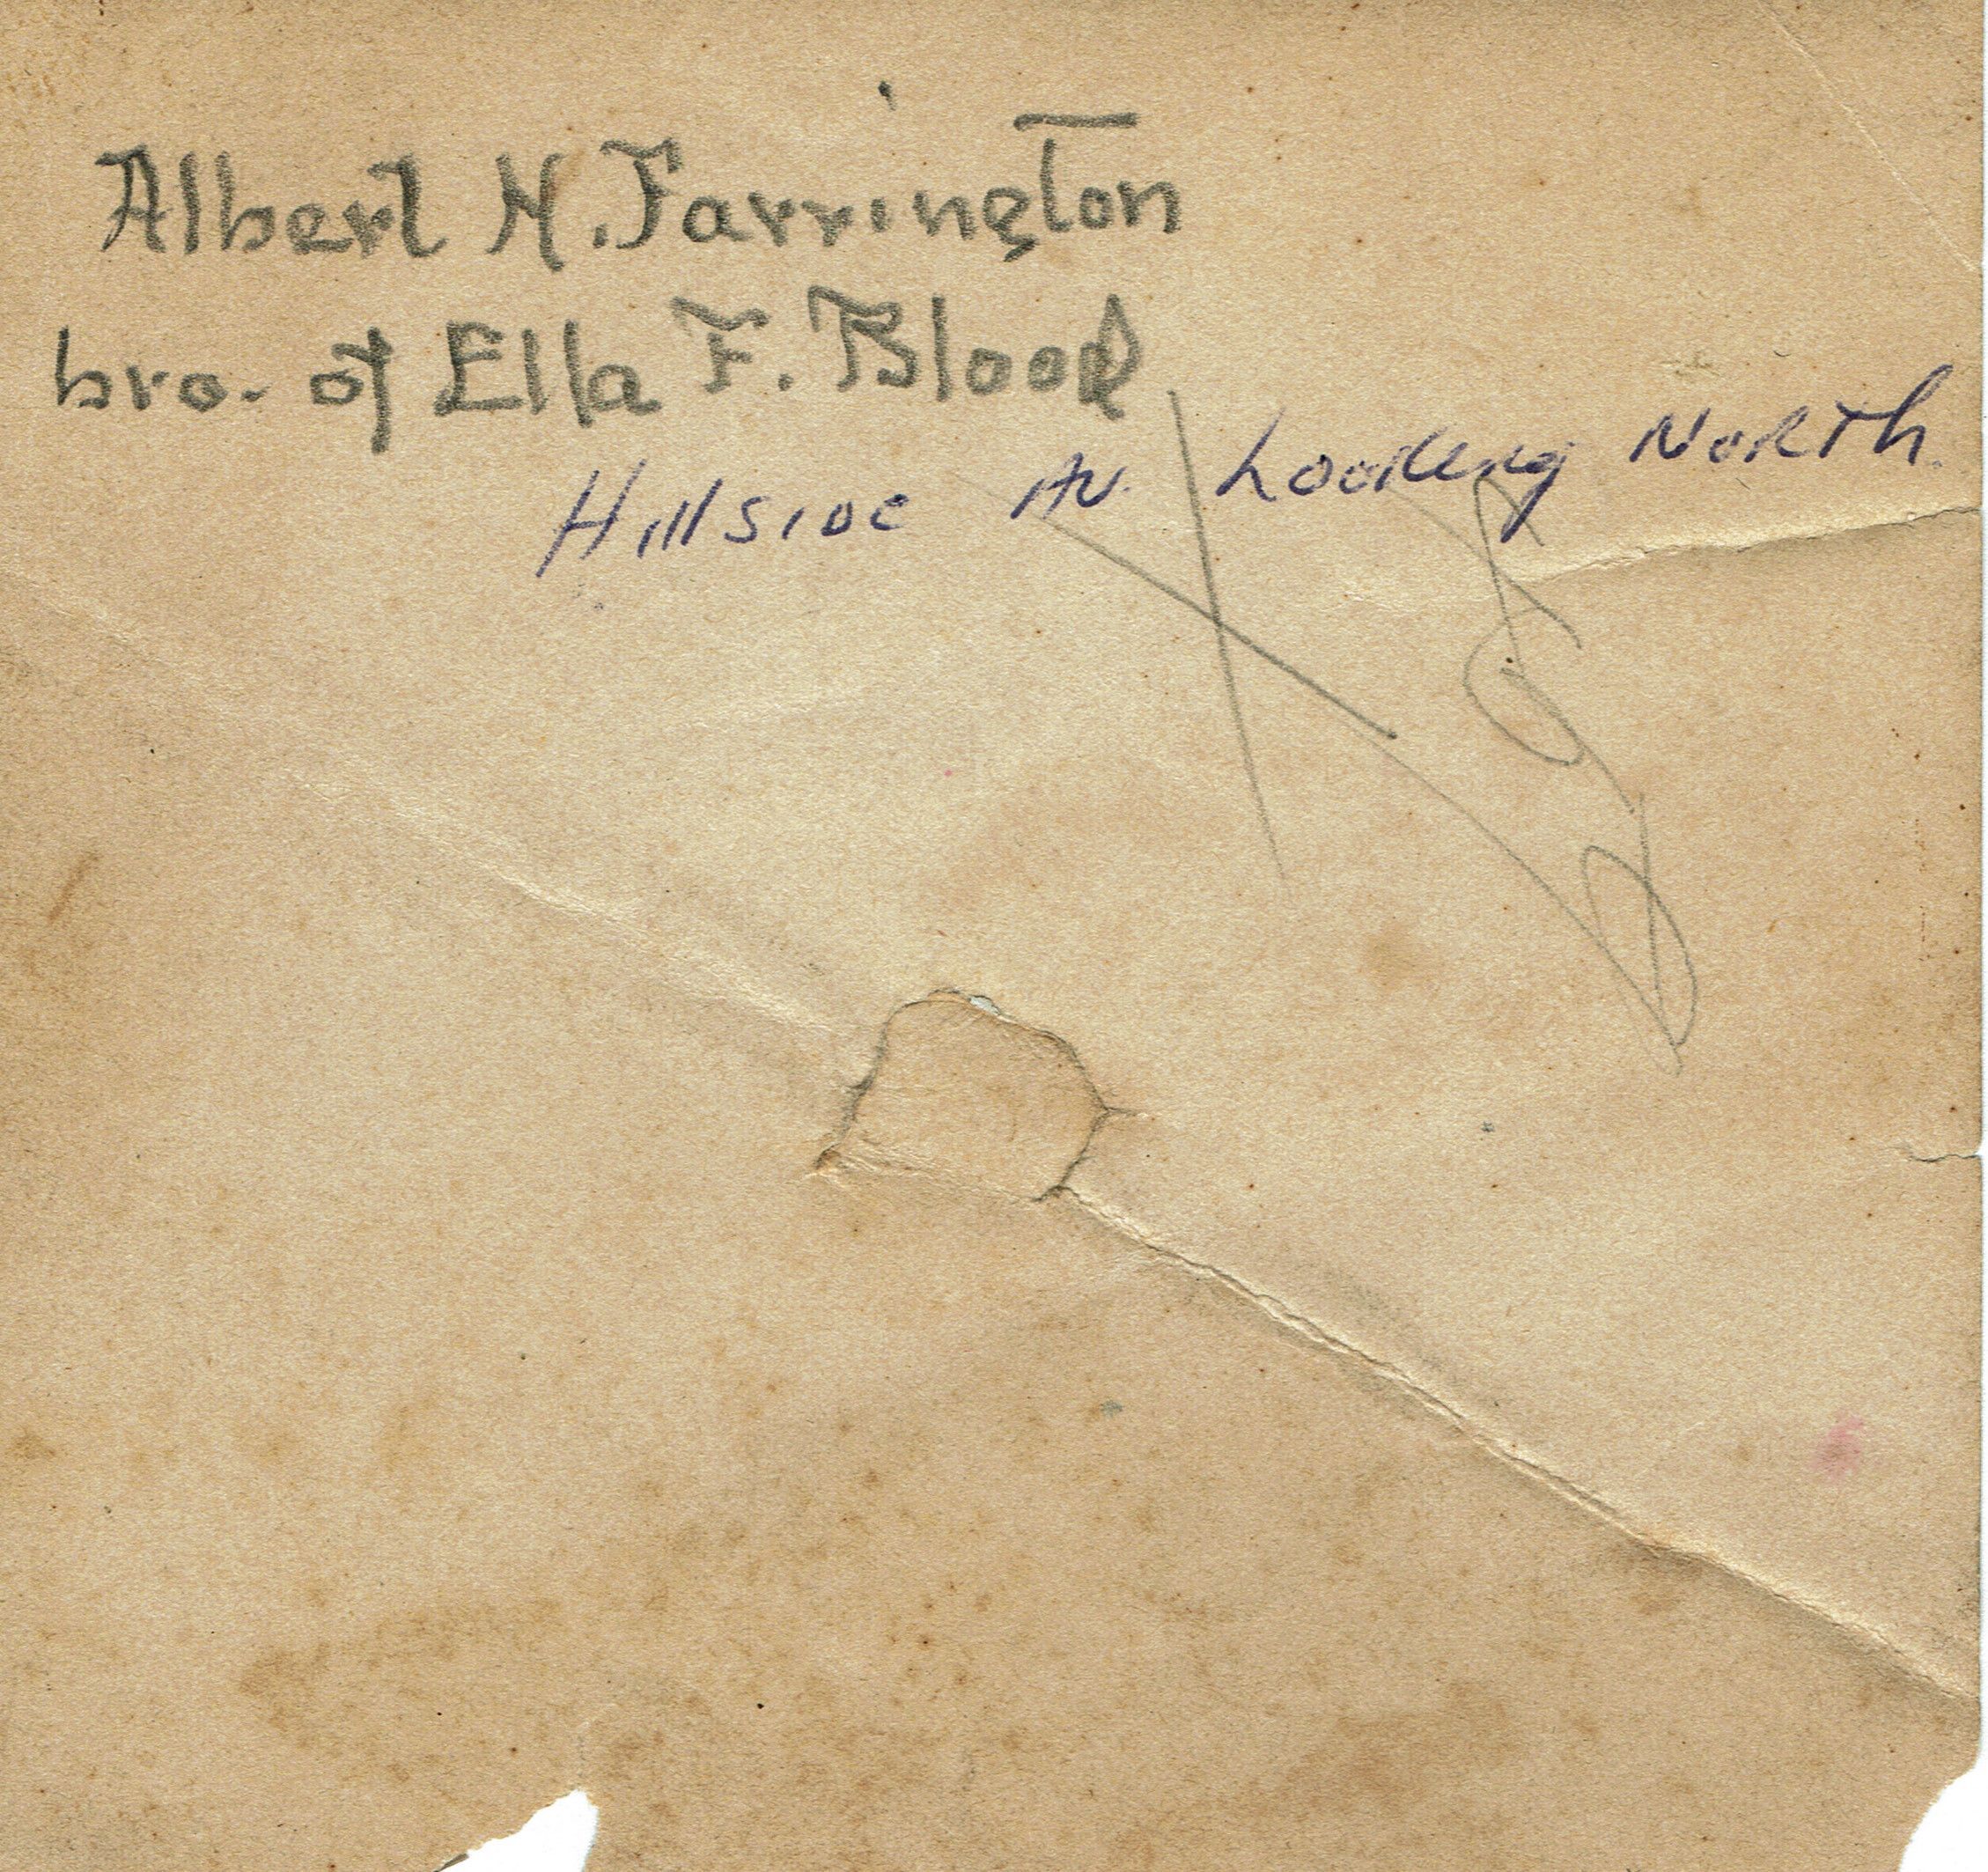 Albert N. Farrington
bro. of Ella F. Blood
Hillside Av. Looking North.